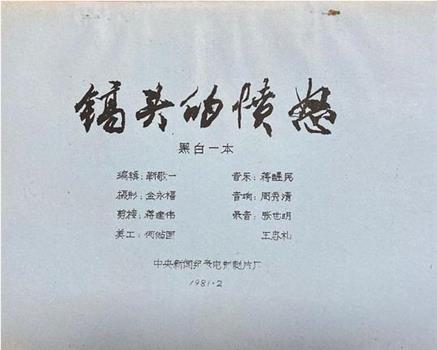 镐头的愤怒
黑白一本
编辑：靳敬一 音乐：蒋醒民
摄影：金永福 音响：周秀清
剪接：蒋建伟 录音：张世明
美工： 王忠礼
中央新闻纪录电影制片厂
1981·2